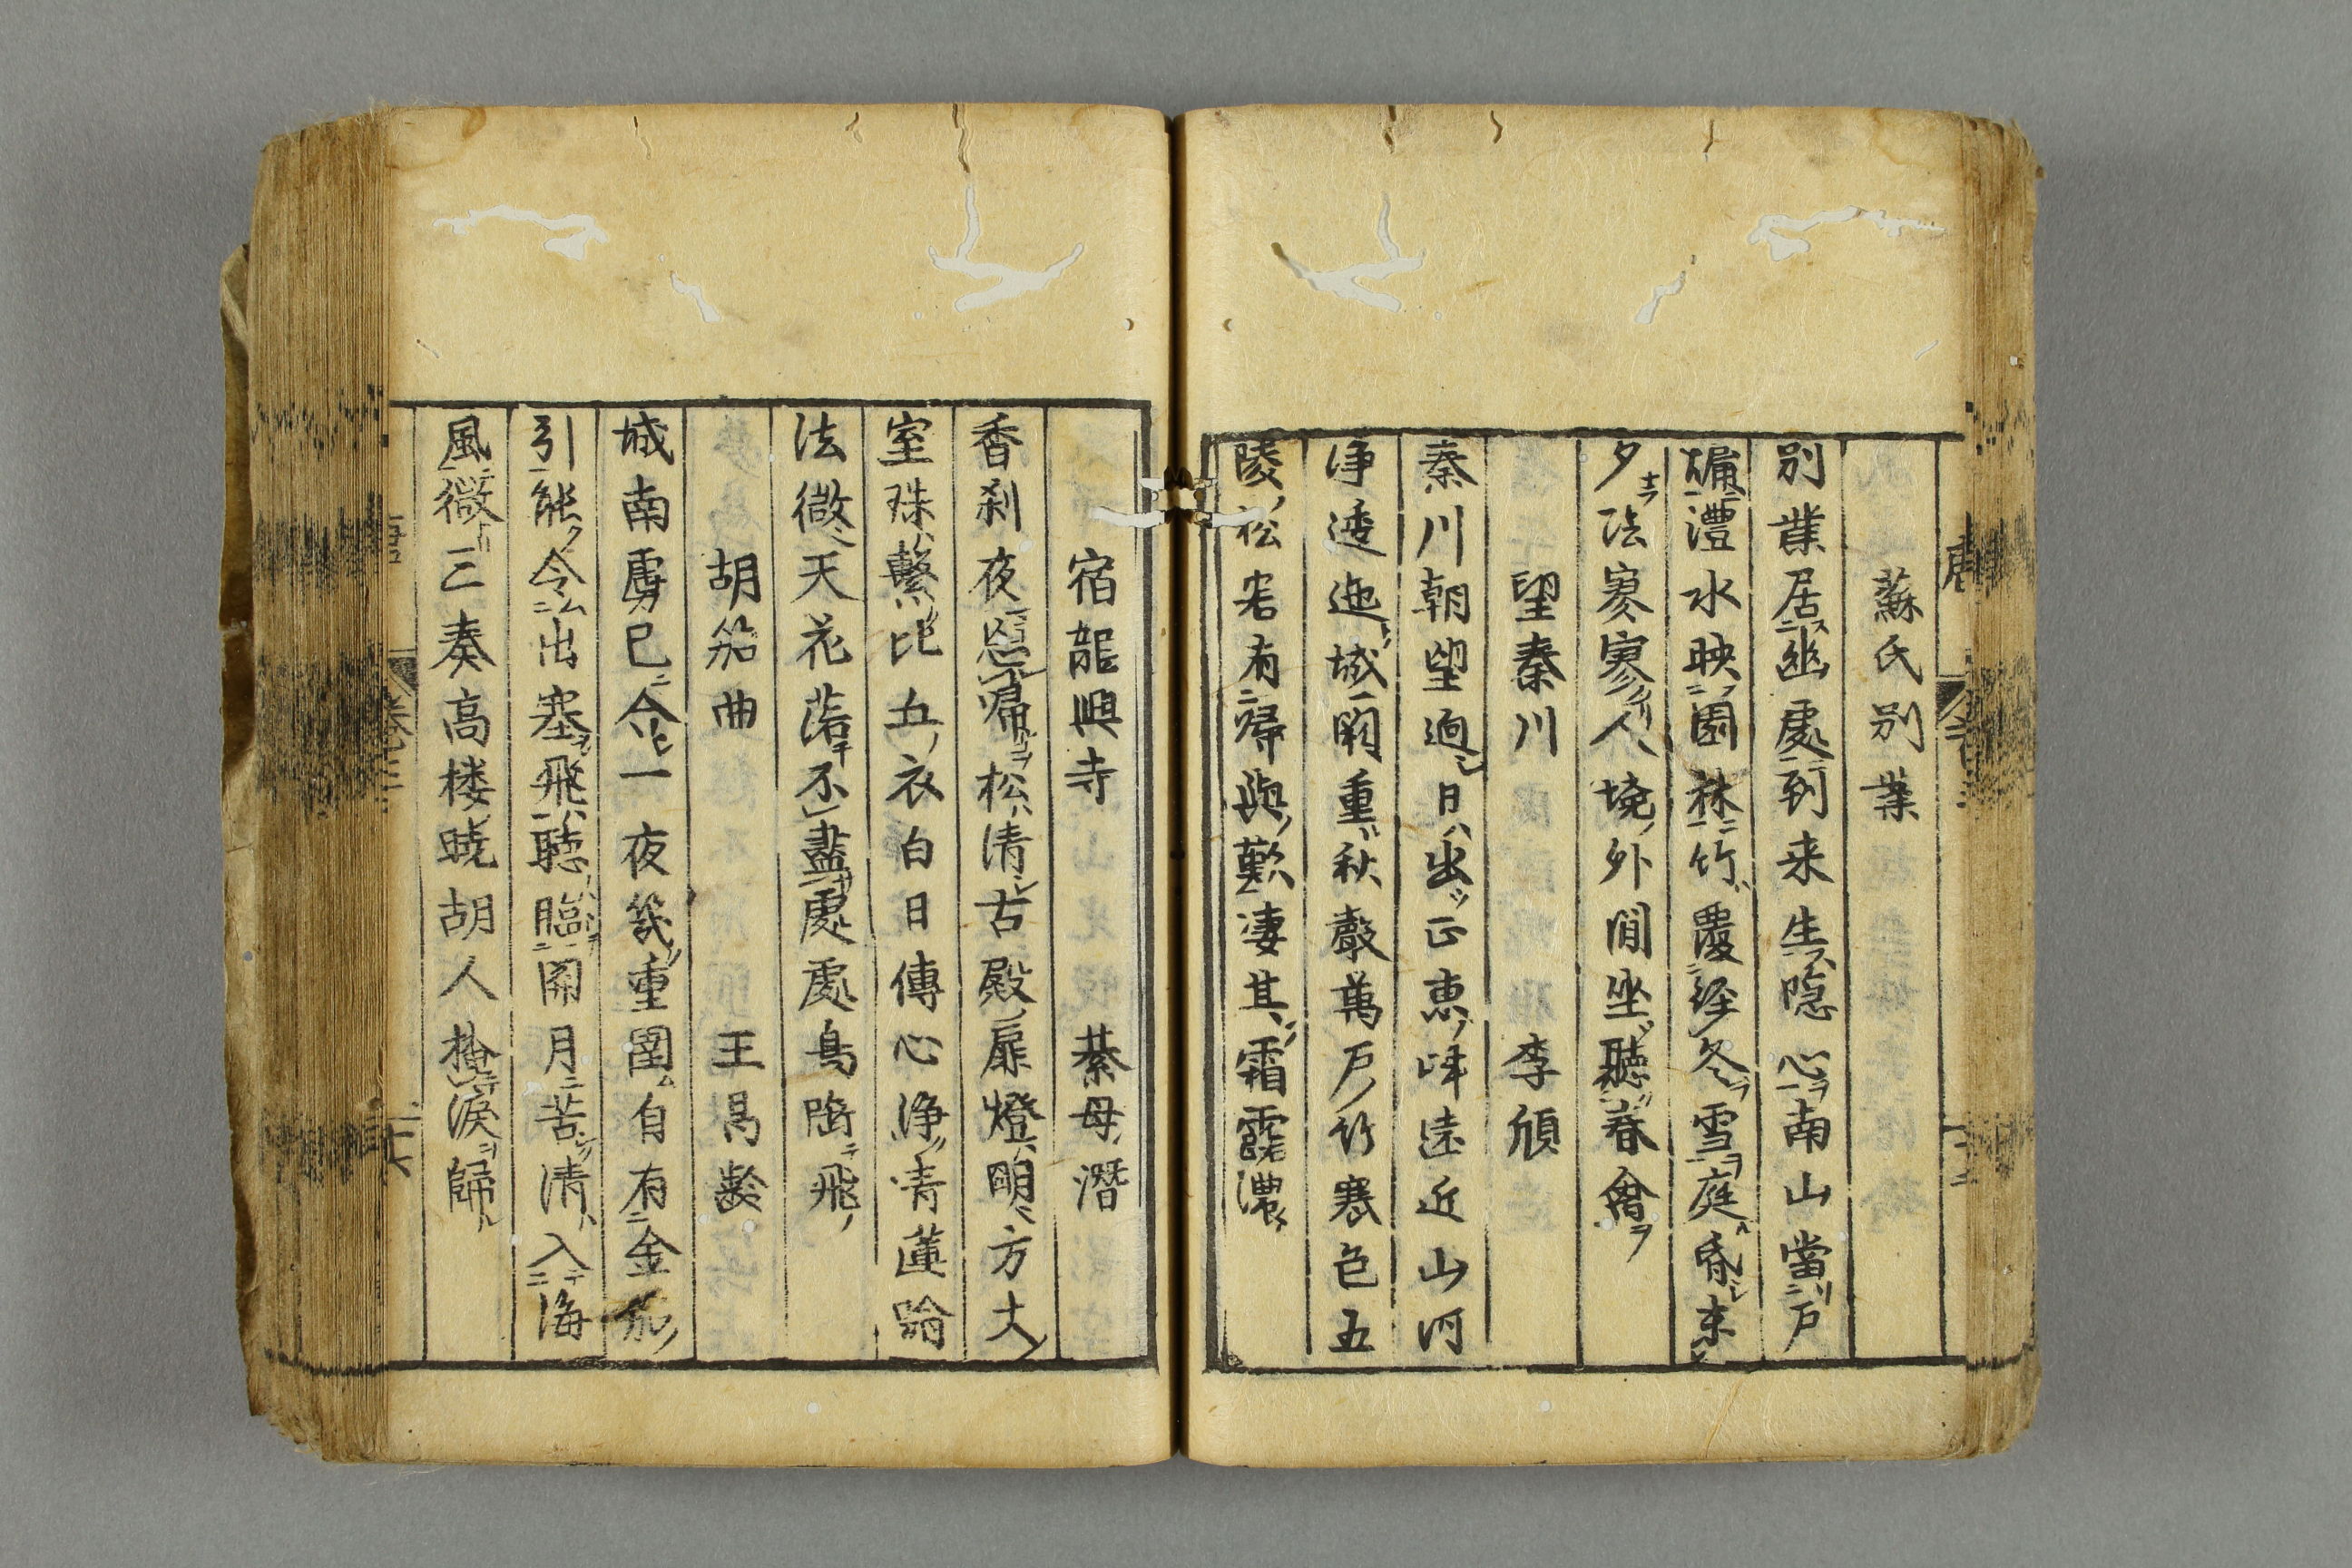 蘇氏別業
別業居幽處到来生隠心南山當戸
牖澧水映園林竹覆経冬雪庭昏未
夕陰寥寥人境外閒坐聴春禽
望秦川 李頎
秦川朝望迥日出正東峰遠近山河
浄逶迤城闕重秋聲萬戸竹寒色五
陵松客有帰與歎凄其霜露濃
宿龍興寺 綦毋潛
香刹夜忘帰松清古殿扉燈明方丈
室珠繋比丘衣白日傳心浄青蓮喻
法微天花落不盡處處鳥啣飛
胡笳曲 王昌齢
城南虜已合一夜幾重圍自有金笳
引能令出塞飛聴臨關月苦清入海
風微三奏高楼暁胡人掩涙歸